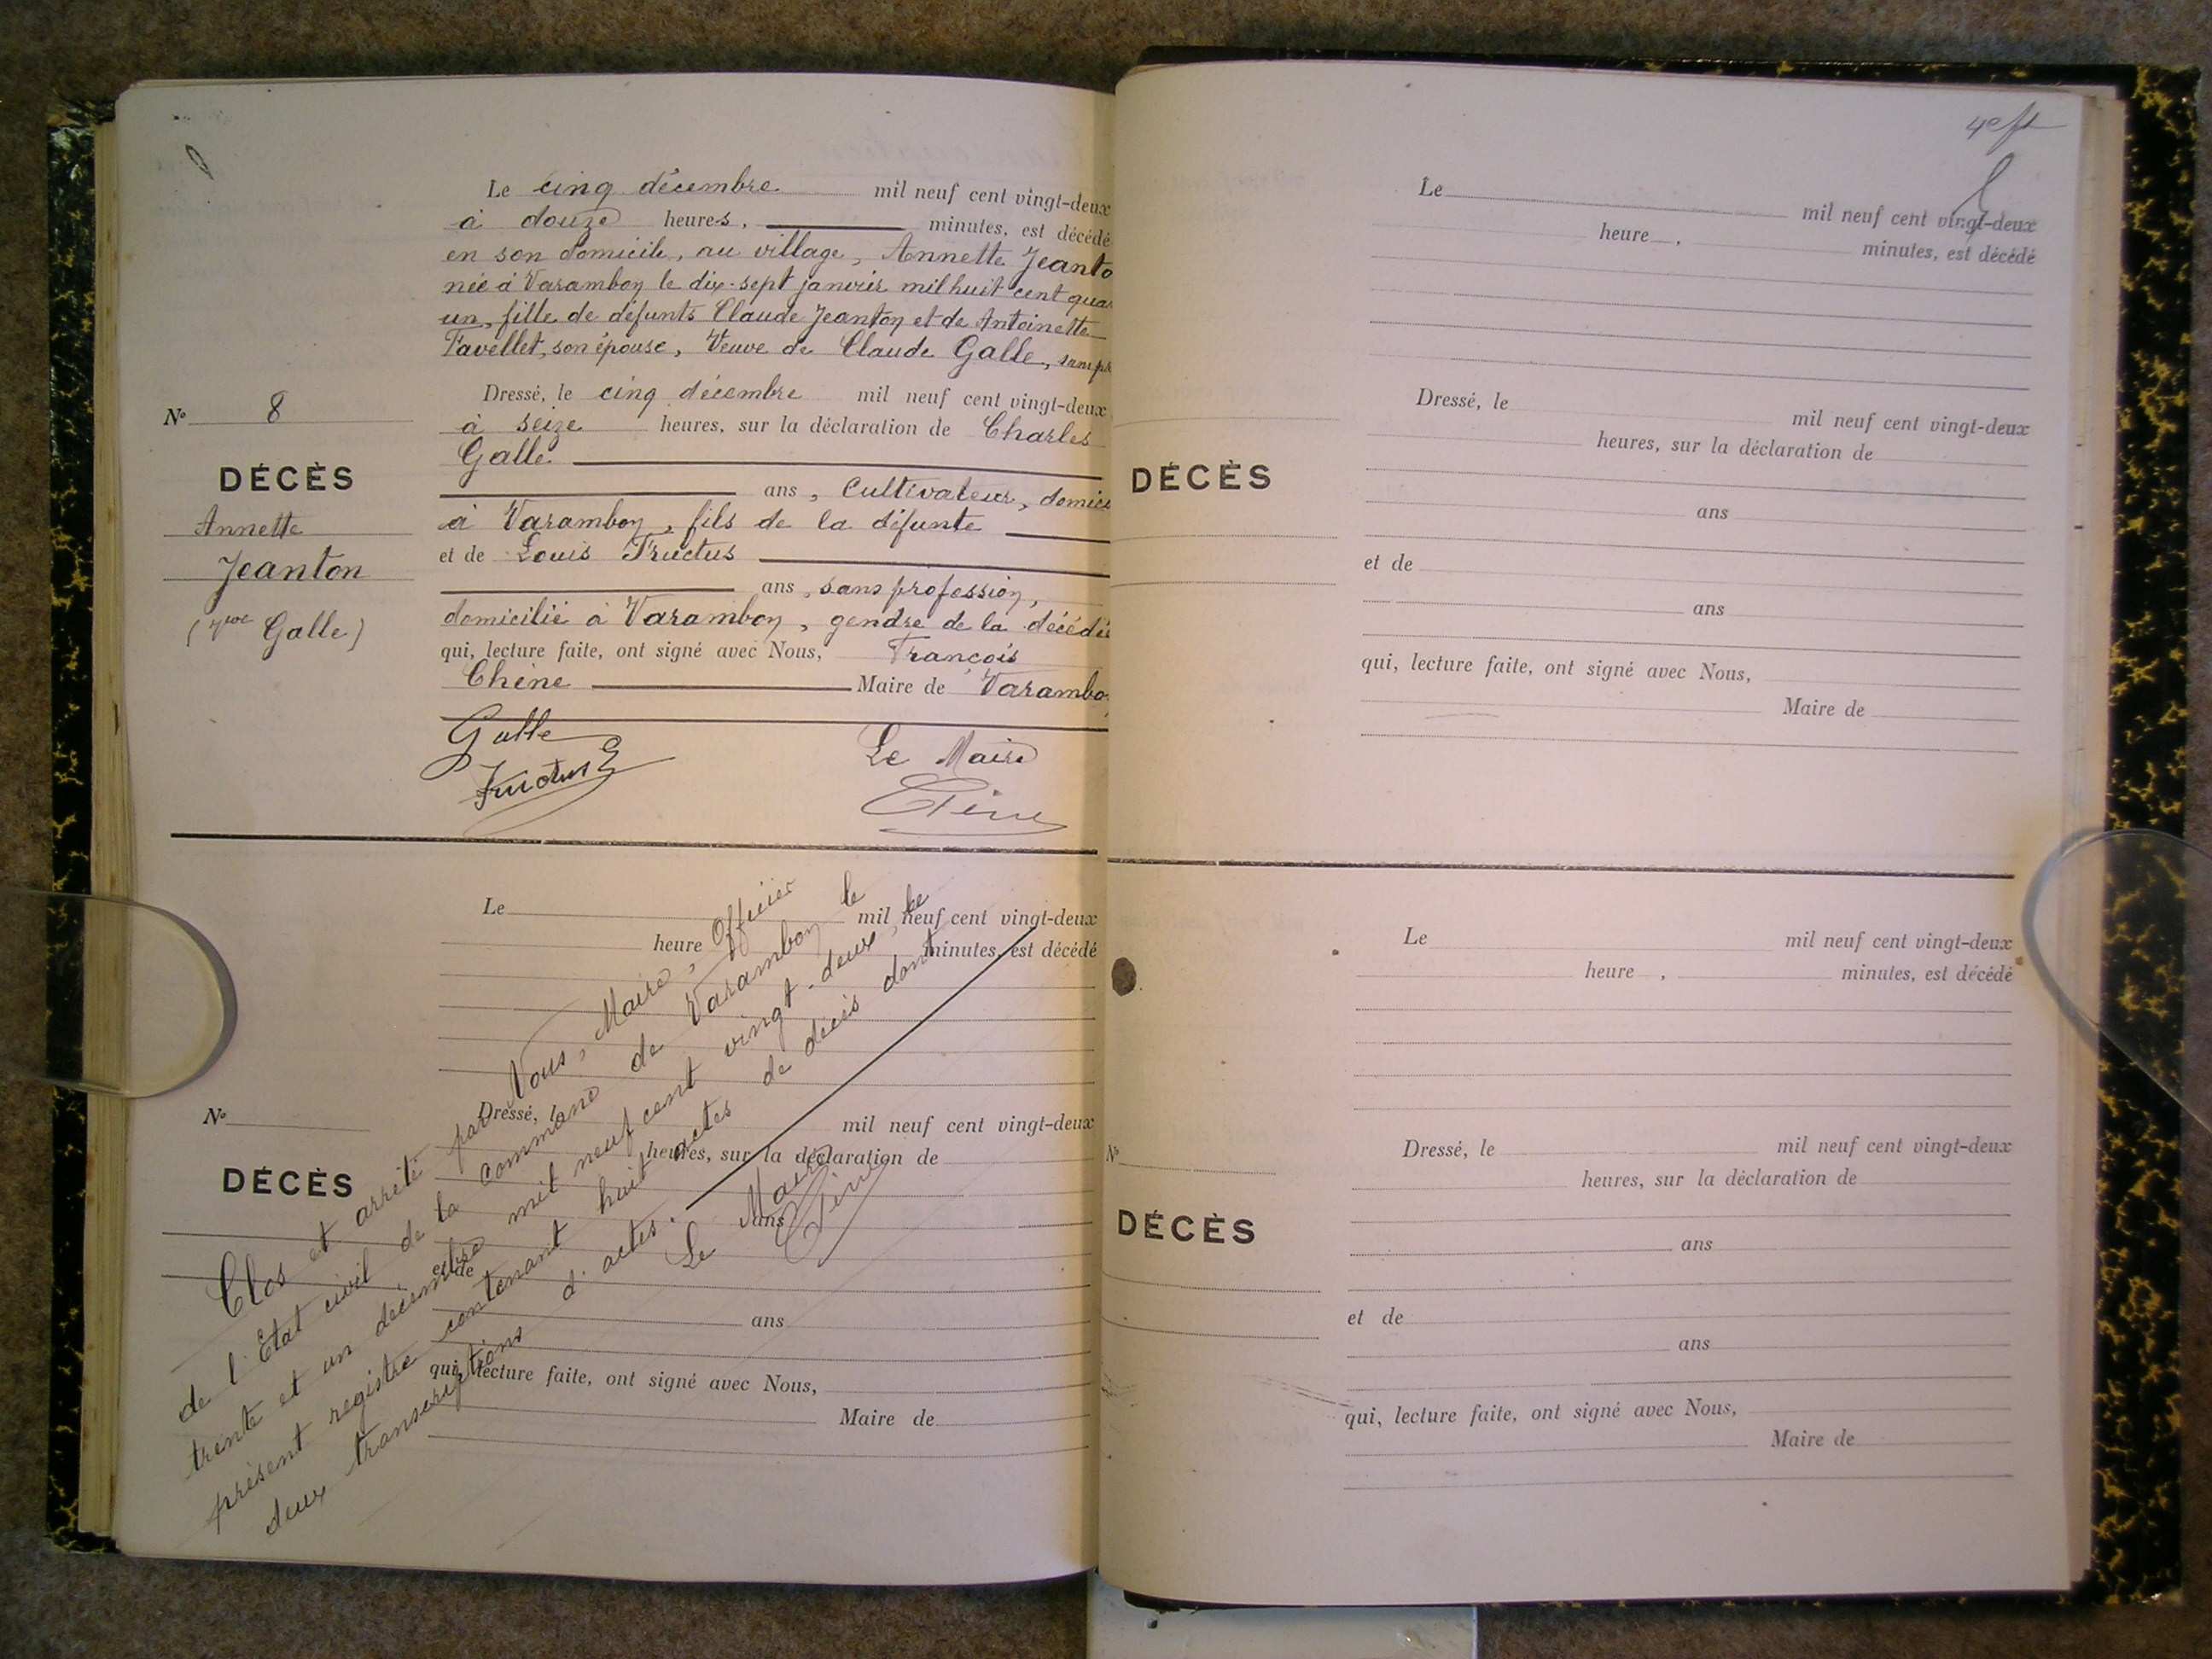 Le cinq décembre mil neuf cent vingt-deux
à douze heures, minutes, est décédé
en son domicile, au village, Annette Jeanto
née à Varambon le dix-sept janvier mil huit cent qua
un, fille de défunts Claude Jeanton et de Antoinette
Favellet, son épouse, Veuve de Claude Galle, sans
Dressé, le cinq décembre mil neuf cent vingt-deux
à seize heures, sur la déclaration de Charles
Galle
ans, Cultivateur, domici
à Varambon, fils de la défunte
et de Louis Fructus
ans, sans profession,
domicilié à Varambon, gendre de la décédée
qui, lecture faite, ont signé avec Nous, François
Chêne Maire de Varambo
Galle
Fructus
Le Maire
Chêne
N° 8
DÉCÈS
Annette
Jeanton
(Vve Galle)
Le mil neuf cent vingt-deux
heure minutes, est décédé
Dressé, le mil neuf cent vingt-deux
heures, sur la déclaration de
ans
et de
ans
qui, lecture faite, ont signé avec Nous,
Maire de
N°
DÉCÈS
Clos et arrêté par Nous, Maire, Officier
de l'Etat civil de la commune de Varambon le
trente et un décembre mil neuf cent vingt-deux, le
présent registre contenant huit actes de décès dont
deux transcriptions d'actes.
Le Maire
Chêne
Le mil neuf cent vingt-deux
heure , minutes, est décédé
Dressé, le mil neuf cent vingt-deux
heures, sur la déclaration de
DÉCÈS
ans
et de
ans
qui, lecture faite, ont signé avec Nous,
Maire de
Le mil neuf cent vingt-deux
heure , minutes, est décédé
Dressé, le mil neuf cent vingt-deux
N°
heures, sur la déclaration de
DÉCÈS
ans
et de
ans
qui, lecture faite, ont signé avec Nous,
Maire de